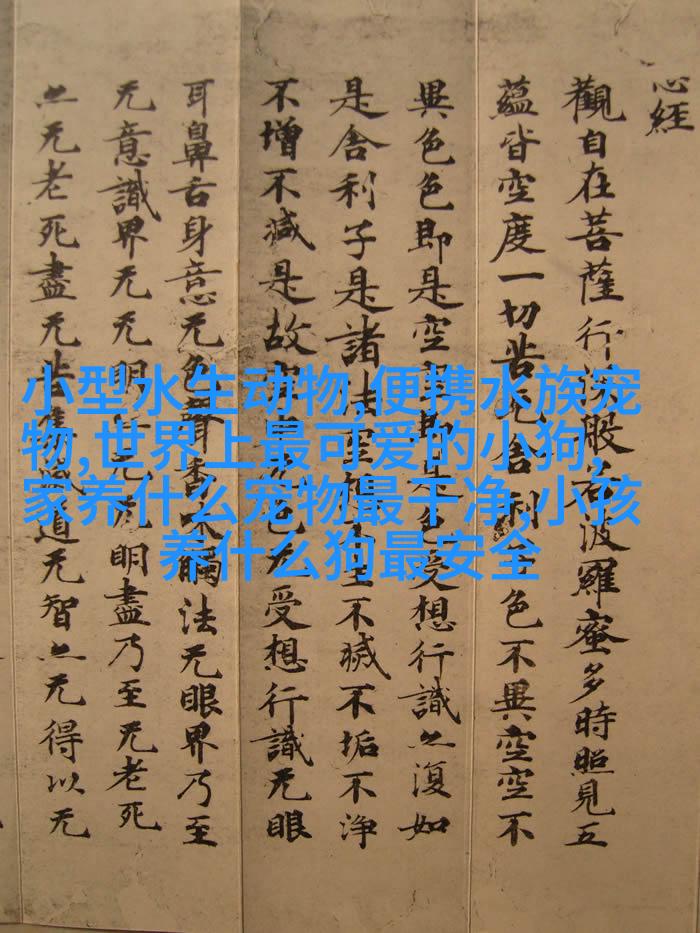 心經
觀自在菩薩行深般若波羅蜜多時照見五
蘊皆空度一切苦厄舍利子色不異空空不
異色色即是空空即是色受想行識亦復如
是舍利子是諸法空相不生不滅不垢不淨
不增不減是故空中无色无受想行識无眼
耳鼻舌身意无色聲香味觸法无眼界乃至
无意識界无无明亦无无明盡乃至无老死
亦无老死盡无苦集滅道无智亦无得以无
小型水生动物,便携水族宠
物,世界上最可爱的小狗,
家养什么宠物最干净,小孩
养什么狗最安全